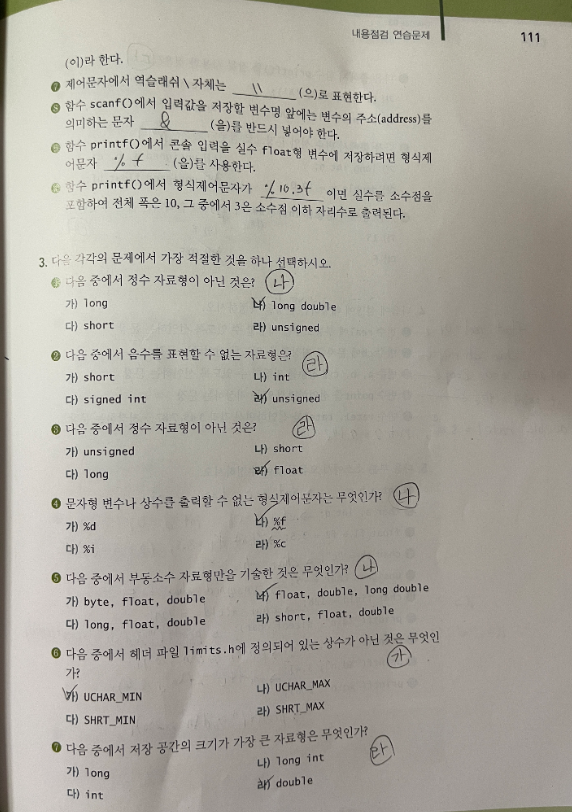 내용점검 연습문제 111
(이)라 한다.
❼ 제어문자에서 역슬래쉬 \ 자체는 \\ (으)로 표현한다.
❽ 함수 scanf()에서 입력값을 저장할 변수명 앞에는 변수의 주소(address)를
의미하는 문자 & (을)를 반드시 넣어야 한다.
❾ 함수 printf()에서 콘솔 입력을 실수 float형 변수에 저장하려면 형식제
어문자 %f (을)를 사용한다.
❿ 함수 printf()에서 형식제어문자가 %10.3f 이면 실수를 소수점을
포함하여 전체 폭은 10, 그 중에서 3은 소수점 이하 자리수로 출력된다.
3. 다음 각각의 문제에서 가장 적절한 것을 하나 선택하시오.
❶ 다음 중에서 정수 자료형이 아닌 것은? 나
가) long 나) long double
다) short 라) unsigned
❷ 다음 중에서 음수를 표현할 수 없는 자료형은? 라
가) short 나) int
다) signed int 라) unsigned
❸ 다음 중에서 정수 자료형이 아닌 것은? 라
가) unsigned 나) short
다) long 라) float
❹ 문자형 변수나 상수를 출력할 수 없는 형식제어문자는 무엇인가? 나
가) %d 나) %f
다) %i 라) %c
❺ 다음 중에서 부동소수 자료형만을 기술한 것은 무엇인가? 나
가) byte, float, double 나) float, double, long double
다) long, float, double 라) short, float, double
❻ 다음 중에서 헤더 파일 limits.h에 정의되어 있는 상수가 아닌 것은 무엇인
가? 가
가) UCHAR_MIN 나) UCHAR_MAX
다) SHRT_MIN 라) SHRT_MAX
❼ 다음 중에서 저장 공간의 크기가 가장 큰 자료형은 무엇인가? 라
가) long 나) long int
다) int 라) double